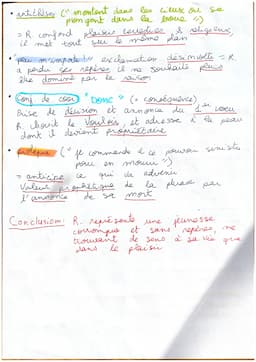 • antithèses ("montent dans les cieux ou se
plongent dans la boue")
= R. confond plaisirs terrestres & religieux,
il met tout sur le même plan
• "peu m'importe" exclamation désinvolte = R
a perdu ses repères il ne souhaite plus
être dominé par la raison
• conj de coor "Donc" (= conséquence)
Prise de décision et annonce du 1er vœu
R. choisit le vouloir et adresse à la peau
dont il devient propriétaire
• ("je commande à ce pouvoir sinistre
pour en mourir")
= anticipe ce qui va advenir
Valeur prophétique de la phrase par
l'annonce de sa mort
Conclusion: R. représente une jeunesse
corrompue et sans repères, ne
trouvant de sens à sa vie que
dans le plaisir